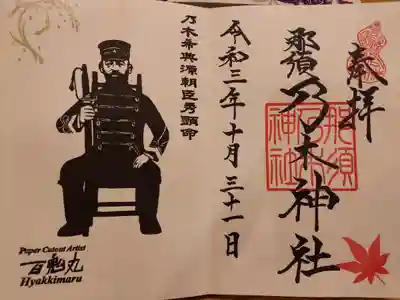 奉拝
那須乃木神社
那須
乃木
神社
令和三年十月三十一日
乃木希典源朝臣秀顕命
Paper Cutout Artist
百鬼丸
Hyakkimaru